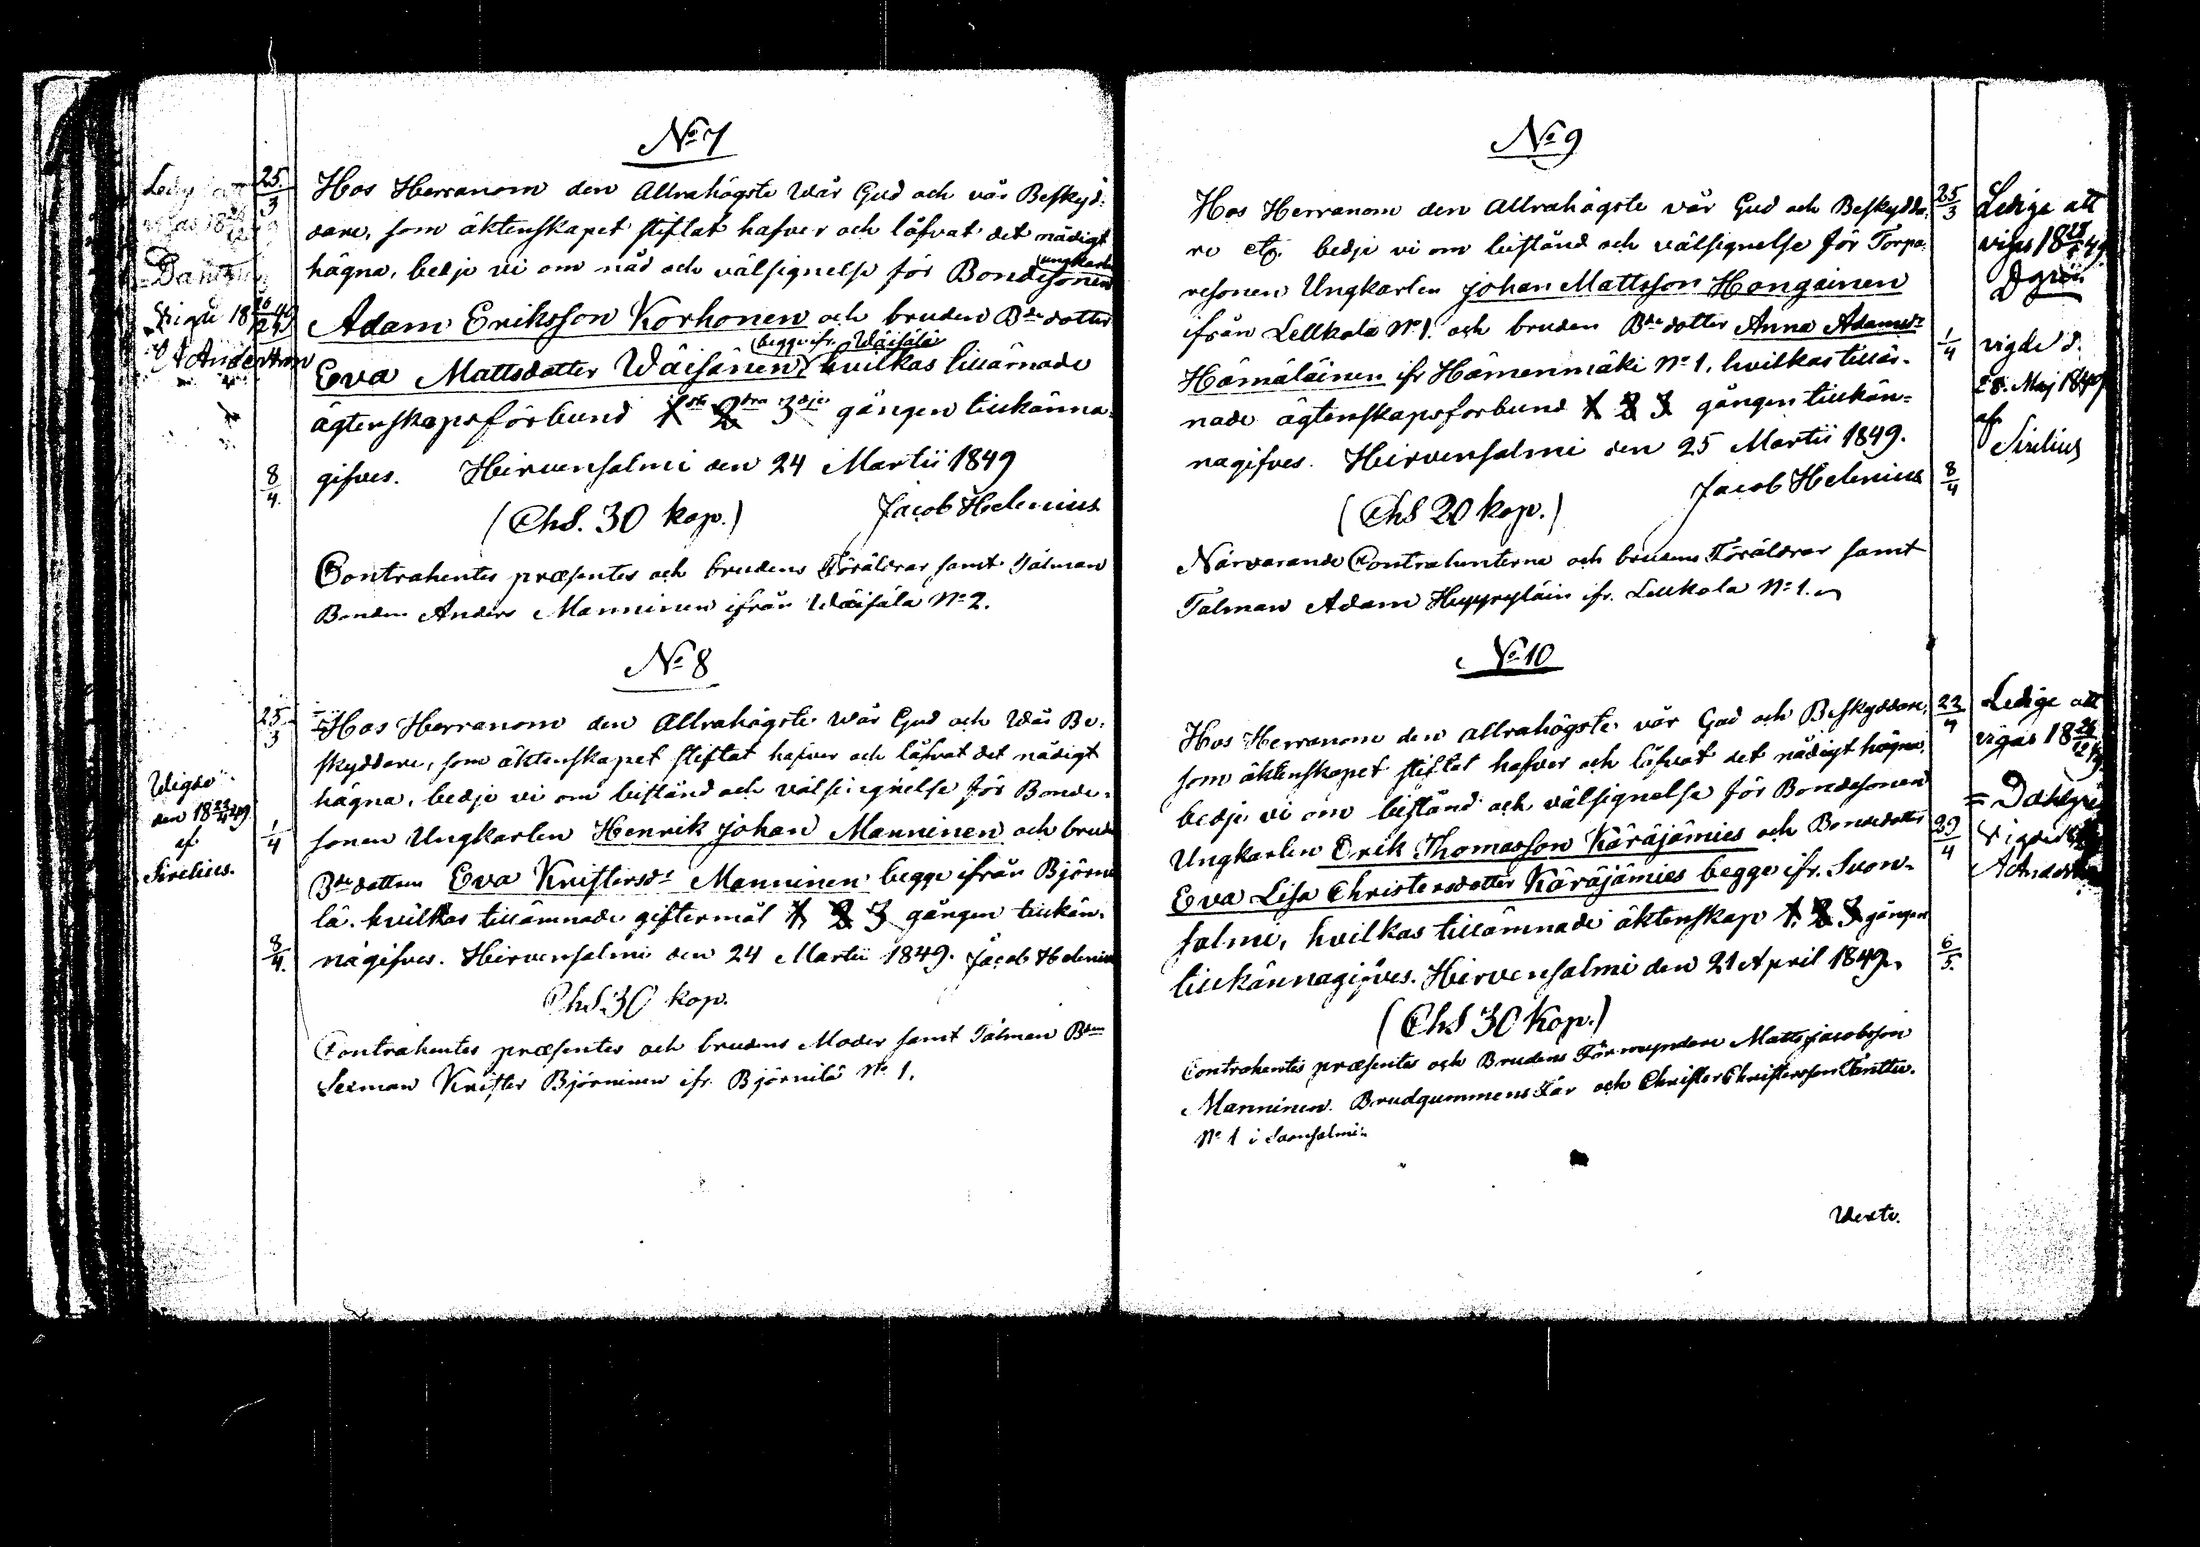 No 7
25/3
Hos Herranom den Allrahögste Wår Gud och vår Beskyd-
dare, som äktenskapet stiftat hafver och låfvat det nådigt
hägna, bedje vi om nåd och välsignelse för Bondesonen ungkarlen
Adam Eriksson Korhonen och bruden Bde dotter
Eva Mattsdotter Wäisänen, begge ifr. Wäisälä hvilkas tillärnade
ägtenskapsförbund 1sta 2dra 3dje gången tillkänna-
gifves. Hirvensalmi den 24 Martii 1849
8/4
(ChS. 30 kop.) Jacob Helenius
Contrahentes præsentes och brudens Föräldrar samt Tålman
Bonden Anders Manninen ifrån Wäisälä No 2.
Vigde
A Anderson
No 8
25/3
Hos Herranom den Allrahögste Wår Gud och Wår Be-
skyddare, som äktenskapet stiftat hafver och låfvat det nådigt
hägna, bedje vi om bistånd och välsignelse för Bonde-
sonen Ungkarlen Henrik Johan Manninen och brud
1/4
Bde dottren Eva Kristersdr Manninen begge ifrån Björni
lä. hvilkas tillämnade giftermål 1 2 3 gången tillkän-
nagifves. Hirvensalmi den 24 Martii 1849. Jacob Helenius
8/4
ChS. 30 kop.
Contrahentes præsentes och brudens Moder samt Tålman Bden
Seeman Krister Björninen ifr. Björnilä No 1.
Wigde
den 18 23/4 49
af
Sirelius.
No 9
Hos Herranom den Allrahögste vår Gud och Beskydda-
re etc. bedje vi om bistånd och välsignelse för Torpa-
resonen Ungkarlen Johan Mattsson Hongainen
ifrån Lellkola No 1. och bruden Bde dotter Anna Adamsdr
Hämäläinen ifr Hämenmäki No 1, hvilkas tillär-
nade ägtenskapsforbund 1 2 3 gången tillkän-
nagifves. Hirvensalmi den 25 Martii 1849.
(ChS 20 kop.) Jacob Helenius
Närvarande Contrahenterna och brudens Föräldrar samt
Tålman Adam ifr. Lellkola No 1.
25/3
1/4
8/4
Ledige att
vigas 18
vigde d.
28. Maj 1849
af
Sirelius
No 10
Hos Herranom den allrahögste vår Gud och Beskyddare,
som äktenskapet stiftat hafver och låfvat det nådigt hägna,
bedje vi om bistånd och välsignelse för Bondesonen
Ungkarlen Erik Thomasson Käräjämies och Bondedotter
Eva Lisa Christersdotter Käräjämies begge ifr. Suon-
salmi, hvilkas tillämnade äktenskap 1. 2 3 gången
tillkännagifves. Hirvensalmi den 21 April 1849.
(ChS 30 Kop.)
Contrahentes præsentes och Brudens Förmyndare Matts Jacobsson
Manninen. Brudgummens Far och Christer Christersson
No 1 i Suonsalmi.
22/4
29/4
6/5.
Ledige att
vigas 18
Vigde
Verte.